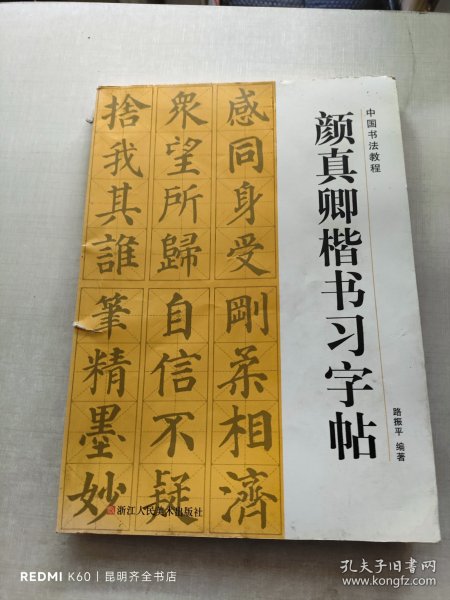 中国书法教程
颜真卿楷书习字帖
路振平 编著
感同身受
刚柔相濟
衆望所歸
自信不疑
捨我其誰
筆精墨妙
浙江人民美术出版社
REDMI K60 | 昆明齐全书店
孔夫子旧书网
www.kongfz.com